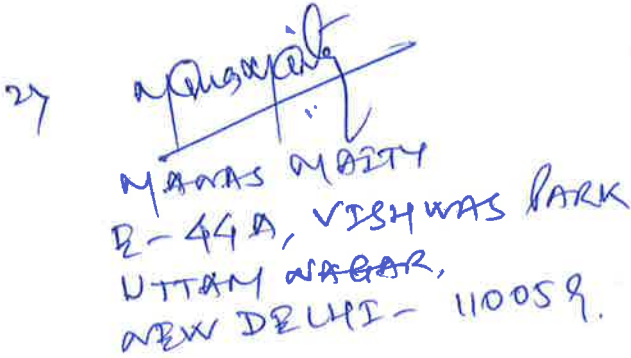 2)
MANAS MAITY
E-44A, VISHWAS PARK
UTTAM NAGAR,
NEW DELHI - 110059.